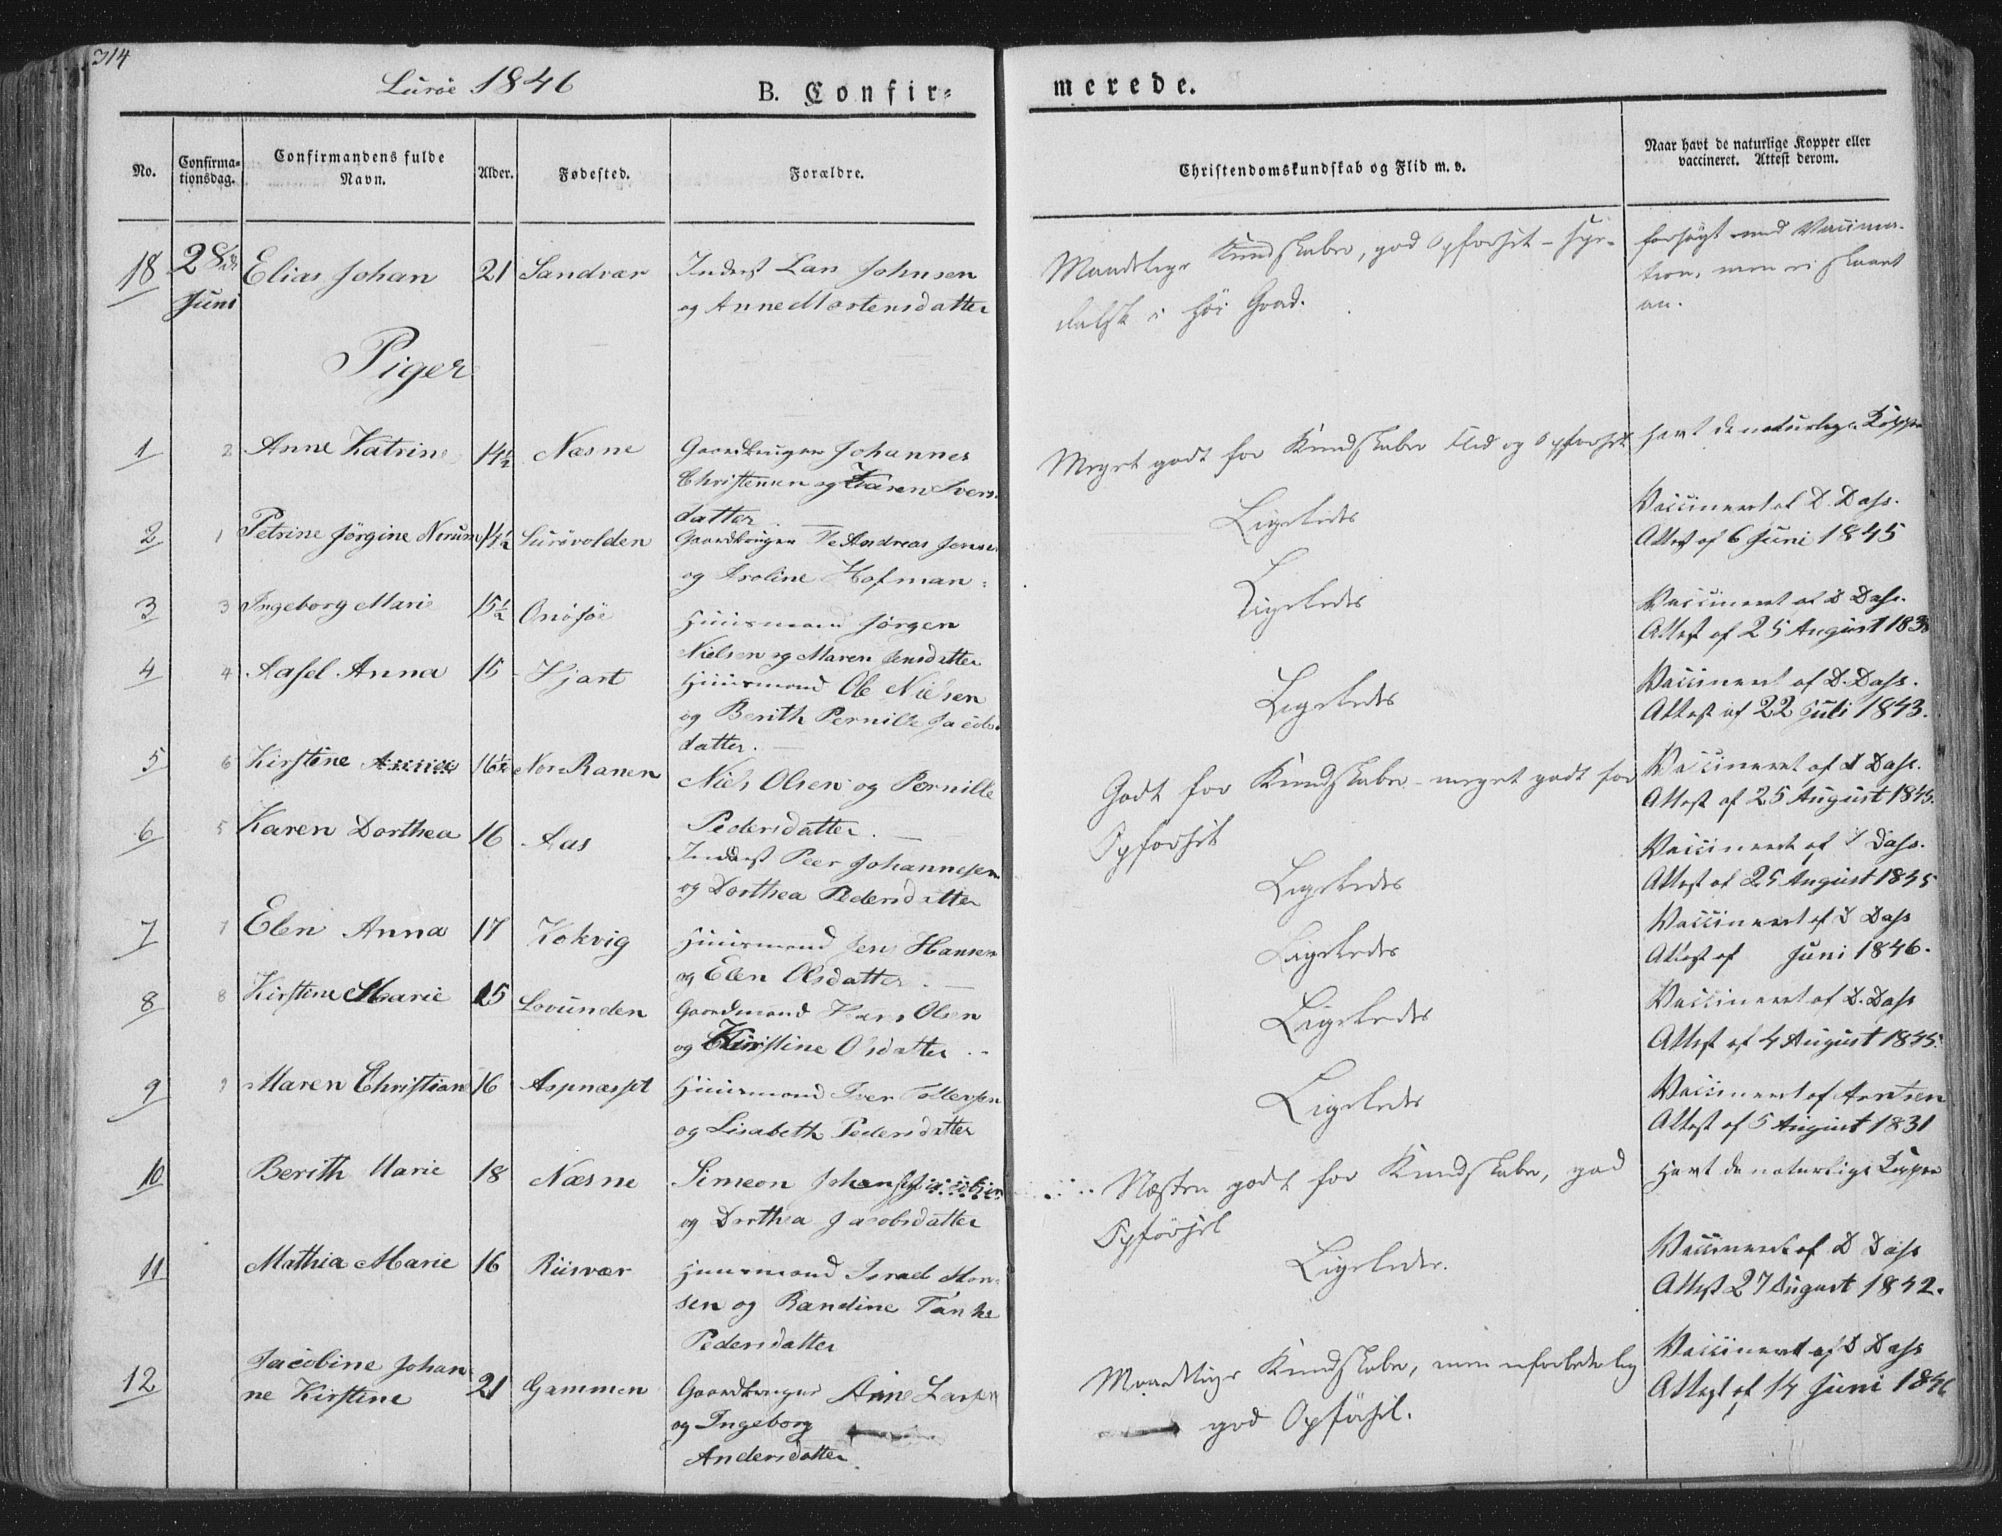 314
Lurøe 1846
B. Confir=
merede.
No.
Confirma=
tionsdag.
Confirmandens fulde
Navn.
Alder.
Fødested.
Forældre.
Christendomskundskab og Flid m. v.
Naar havt de naturlige Kopper eller
vaccineret. Attest derom.
18 28de Juni Elias Johan 21 Sandvær Inderst Lars Johnsen
og Anne Mortensdatter
Maadelige Kundskaber, god Opførsel - spe-
dalsk i høi Grad.
forsøgt med Vaccina-
tion, men ei slaaet
an.
Piger
1 2 Anne Katrine 14½ Næsne Gaardbruger Johannes
Christensen og Karen Ivers
datter
Meget godt for Kundskaber Flid og Opførsel
havt de naturlige Kopper
2 1 Petrine Jørgine Nerum 14½ Lurøvolden Gaardbruger Andreas Jensen
og Aroline Hofman
Ligeledes
Vaccineret af D. Dass.
Attest af 6 Juni 1845
3 3 Ingeborg Marie 15½ Onøsøe Huusmand Jørgen
Nielsen og Maren Jensdatter
Ligeledes
Vaccineret af D Dass.
Attest af 25 August 1838
4 4 Aasel Anna 15 Hjart Huusmand Ole Nielsen
og Berith Pernille Jacobs
datter.
Ligeledes
Vaccineret af D. Dass.
Attest af 22 Juli 1843.
5 6 Kirstine Anna 16½ Nor Ranen Niels Olsen og Pernille
Pedersdatter.
Godt for Kundskaber - meget godt for
Opførsel
Vaccineret af D Dass.
Attest af 25 August 1845.
6 5 Karen Dorthea 16 Aas Inderst Peer Johannesen
og Dorthea Pedersdatter
Ligeledes
Vaccineret af D Dass.
Attest af 25 August 1845
7 7 Elen Anna 17 Kokvig Huusmand Jens Hansen
og Elen Olsdatter.
Ligeledes
Vaccineret af D Dass
Attest af Juni 1846.
8 8 Kirstine Marie 15 Lovunden Gaardmand Hans Olsen
og Kirstine Olsdatter.
Ligeledes
Vaccineret af D. Dass
Attest af 4 August 1845.
9 9 Maren Christian 16 Aspnæsset Huusmand Iver Tollefsen
og Lisabeth Pedersdatter
Ligeledes
Vaccineret af Arntsen
Attest af 5 August 1831
10 Berith Marie 18 Næsne Simeon
og Dorthea Jacobsdatter
Næsten godt for Kundskaber, god
Opførsel
Havt de naturlige Kopper
11 Mathia Marie 16 Riisvær Huusmand Israel Mor-
sen og Randine Tanke
Pedersdatter
Ligeledes.
Vaccineret af D Dass
Attest 27 August 1842.
12 Jacobine Johan-
ne Kirstine 21 Gammen Gaardbruger Arne Larsen
og Ingeborg
Andersdatter
Maadelige Kundskaber, men
god Opførsel.
Vaccineret af D Dass
Attest af 14 Juni 1846